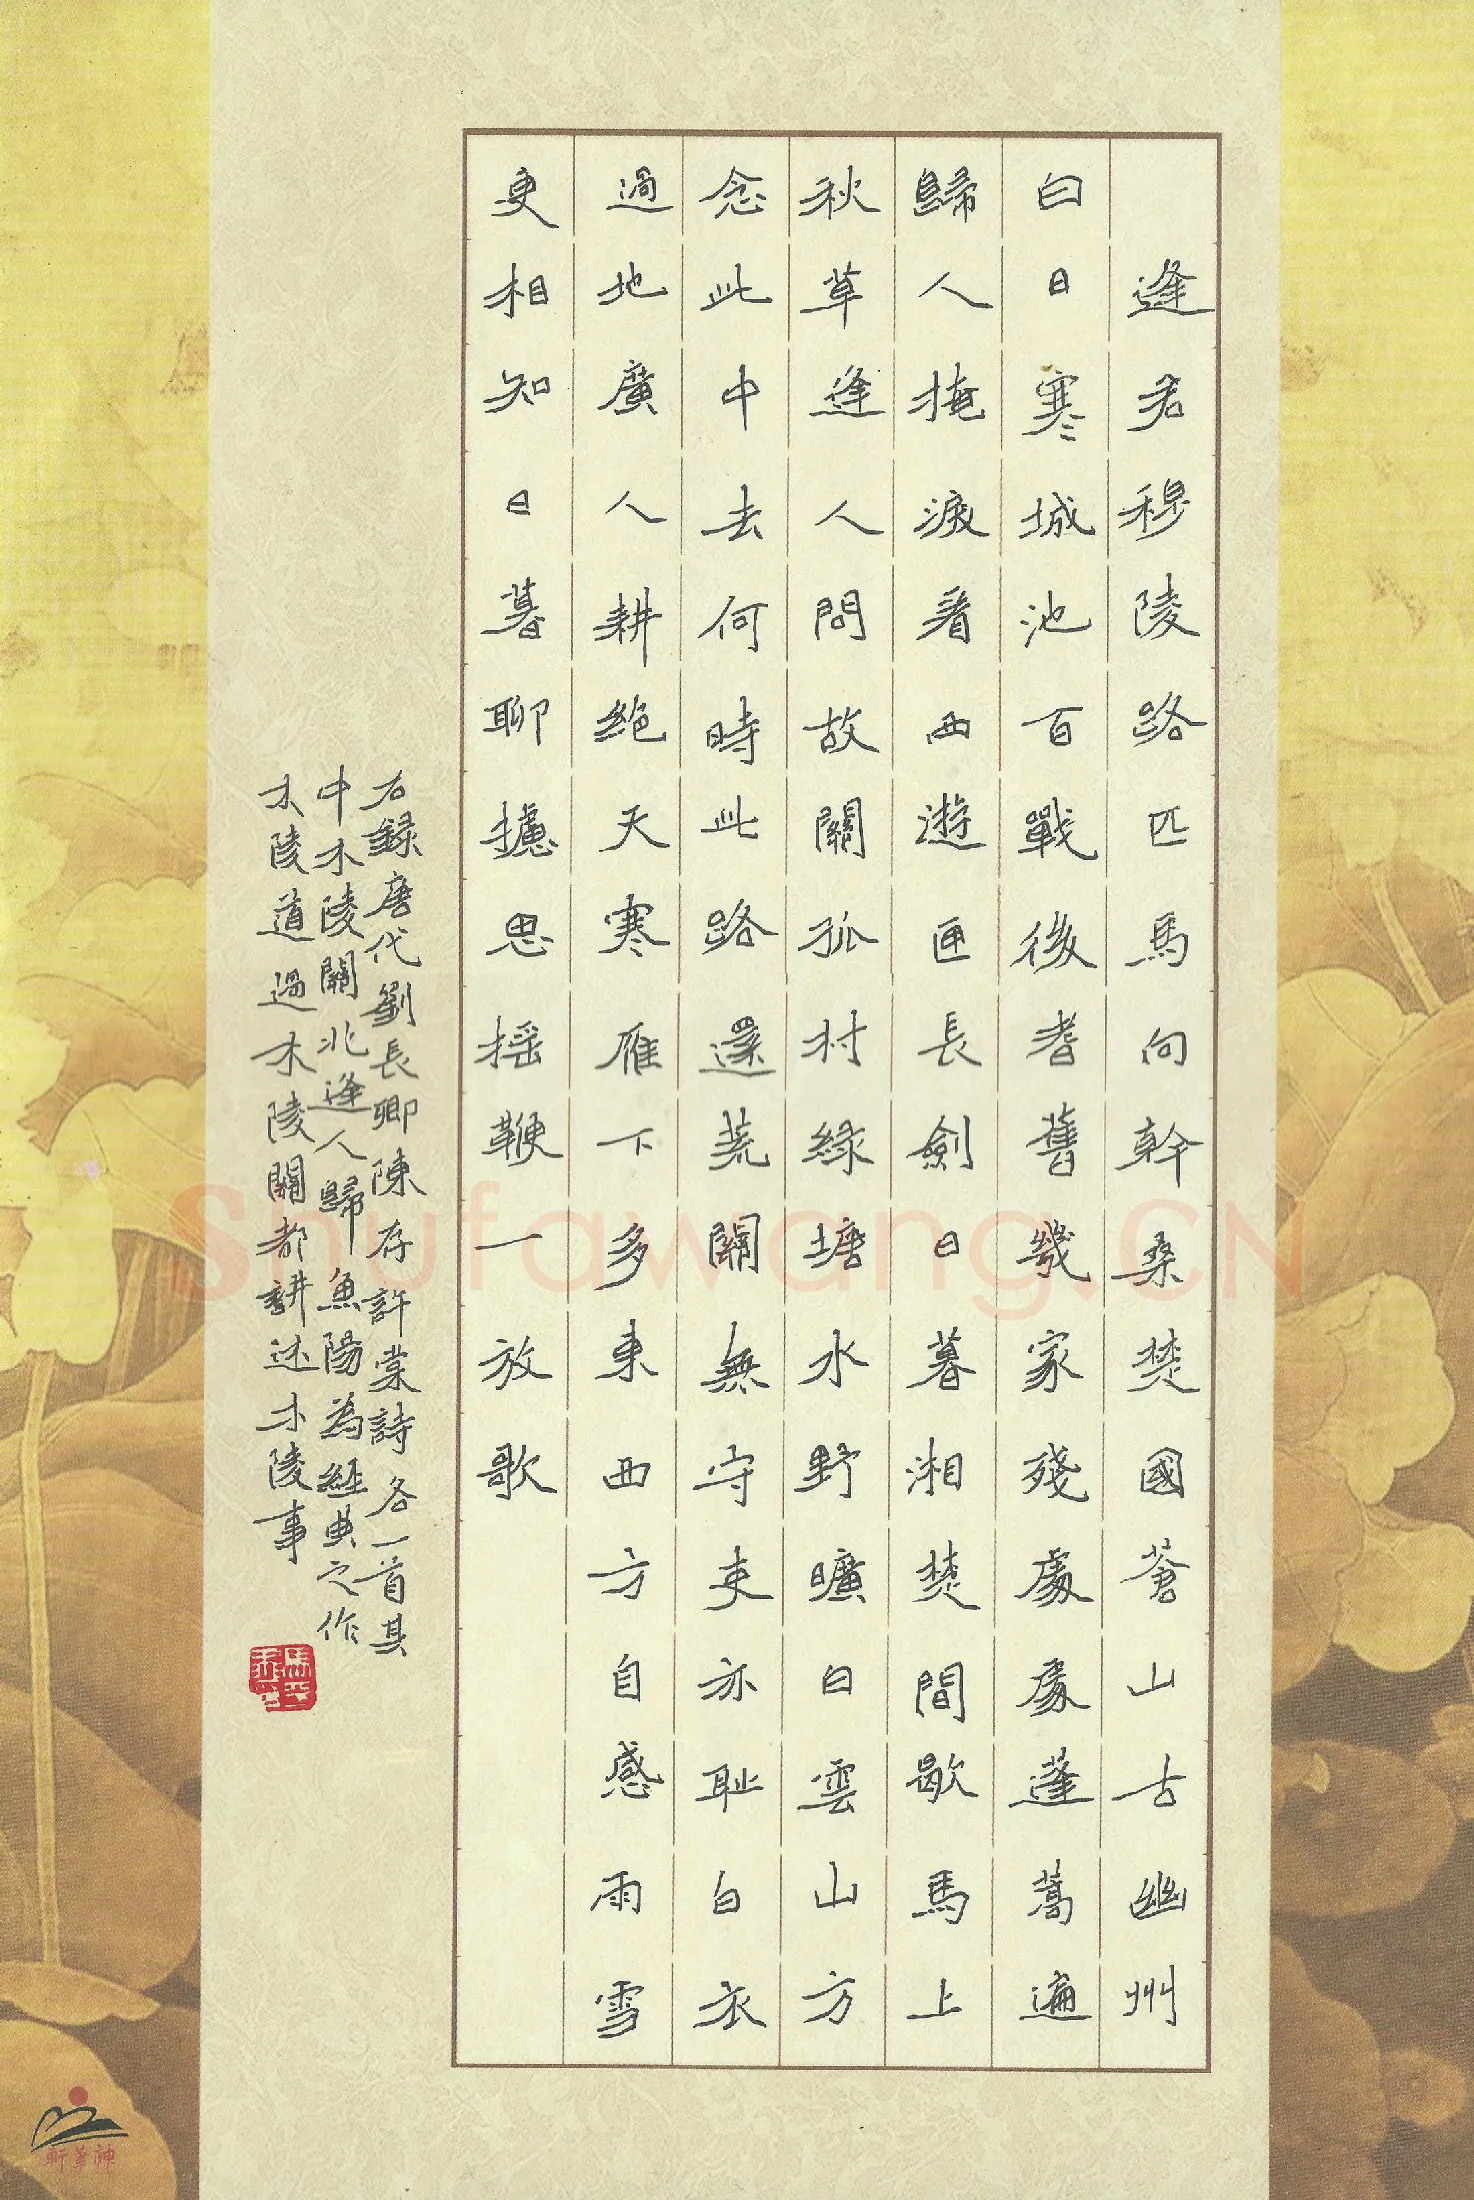 逢君穆陵路匹馬向幹桑楚國蒼山古幽州
白日寒城池百戰後耆舊幾家殘處處蓬蒿遍
歸人掩淚看西遊匣長劍日暮湘楚間歇馬上
秋草逢人問故關孤村綠塘水野曠白雲山方
念此中去何時此路還荒關無守吏亦耻白衣
過地廣人耕絕天寒雁下多東西方自感雨雪
更相知日暮聊攄思摇鞭一放歌
右錄唐代劉長卿陳存許棠詩各一首其
中木陵關北逢人歸魚陽為經典之作
木陵道過木陵關都講述木陵事
Shufawang.CN